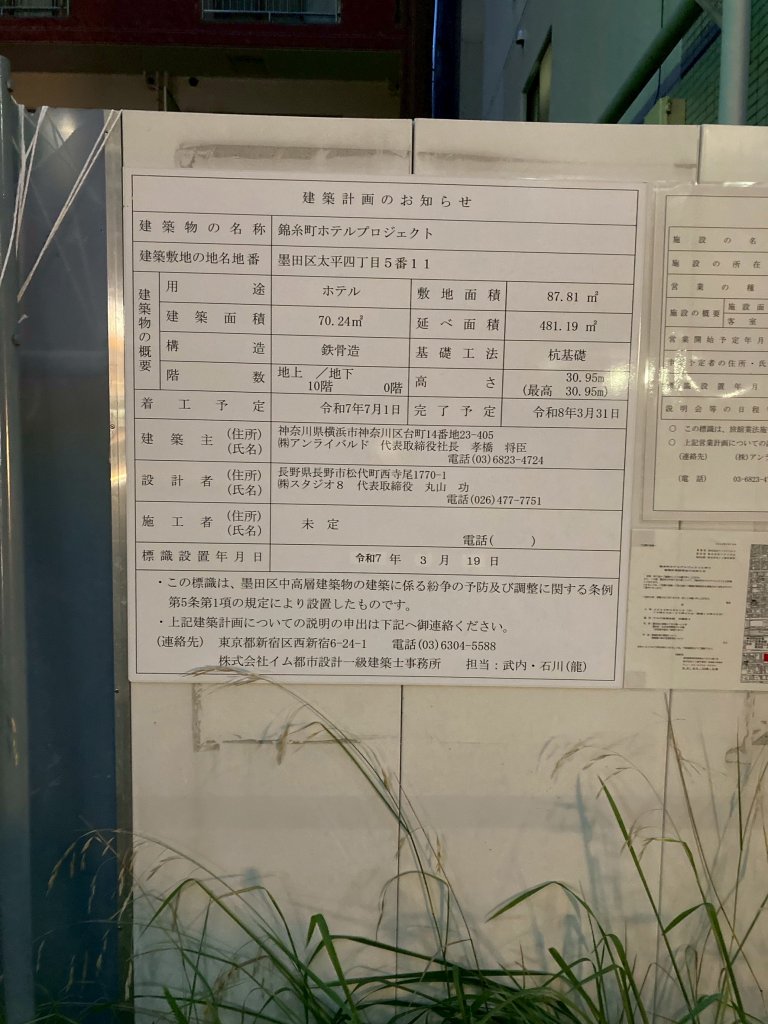 建築計画のお知らせ
建築物の名称 錦糸町ホテルプロジェクト
建築敷地の地名地番 墨田区太平四丁目5番11
建築物の概要
用途 ホテル 敷地面積 87.81 ㎡
建築面積 70.24㎡ 延べ面積 481.19 ㎡
構造 鉄骨造 基礎工法 杭基礎
階数 地上 10階 /地下 0階 高さ 30.95m (最高 30.95m)
着工予定 令和7年7月1日 完了予定 令和8年3月31日
建築主 (住所) 神奈川県横浜市神奈川区台町14番地23-405
(氏名) ㈱アンライバルド 代表取締役社長 孝橋 将臣
電話(03)6823-4724
設計者 (住所) 長野県長野市松代町西寺尾1770-1
(氏名) ㈱スタジオ8 代表取締役 丸山 功
電話(026)477-7751
施工者 (住所) (氏名) 未定
電話( )
標識設置年月日 令和7 年 3 月 19 日
・この標識は、墨田区中高層建築物の建築に係る紛争の予防及び調整に関する条例
第5条第1項の規定により設置したものです。
・上記建築計画についての説明の申出は下記へ御連絡ください。
(連絡先) 東京都新宿区西新宿6-24-1 電話(03)6304-5588
株式会社イム都市設計一級建築士事務所 担当:武内・石川(龍)
施設の名
施設の所在
営業の種
施設の概要 施設面
客室
営業開始予定年月
予定者の住所・氏
標識設置年月
説明会等の日程
○ この標識は、旅館業法施
○ 上記営業計画についての
(連絡先) (株)アン
(電話) 03-6823-4